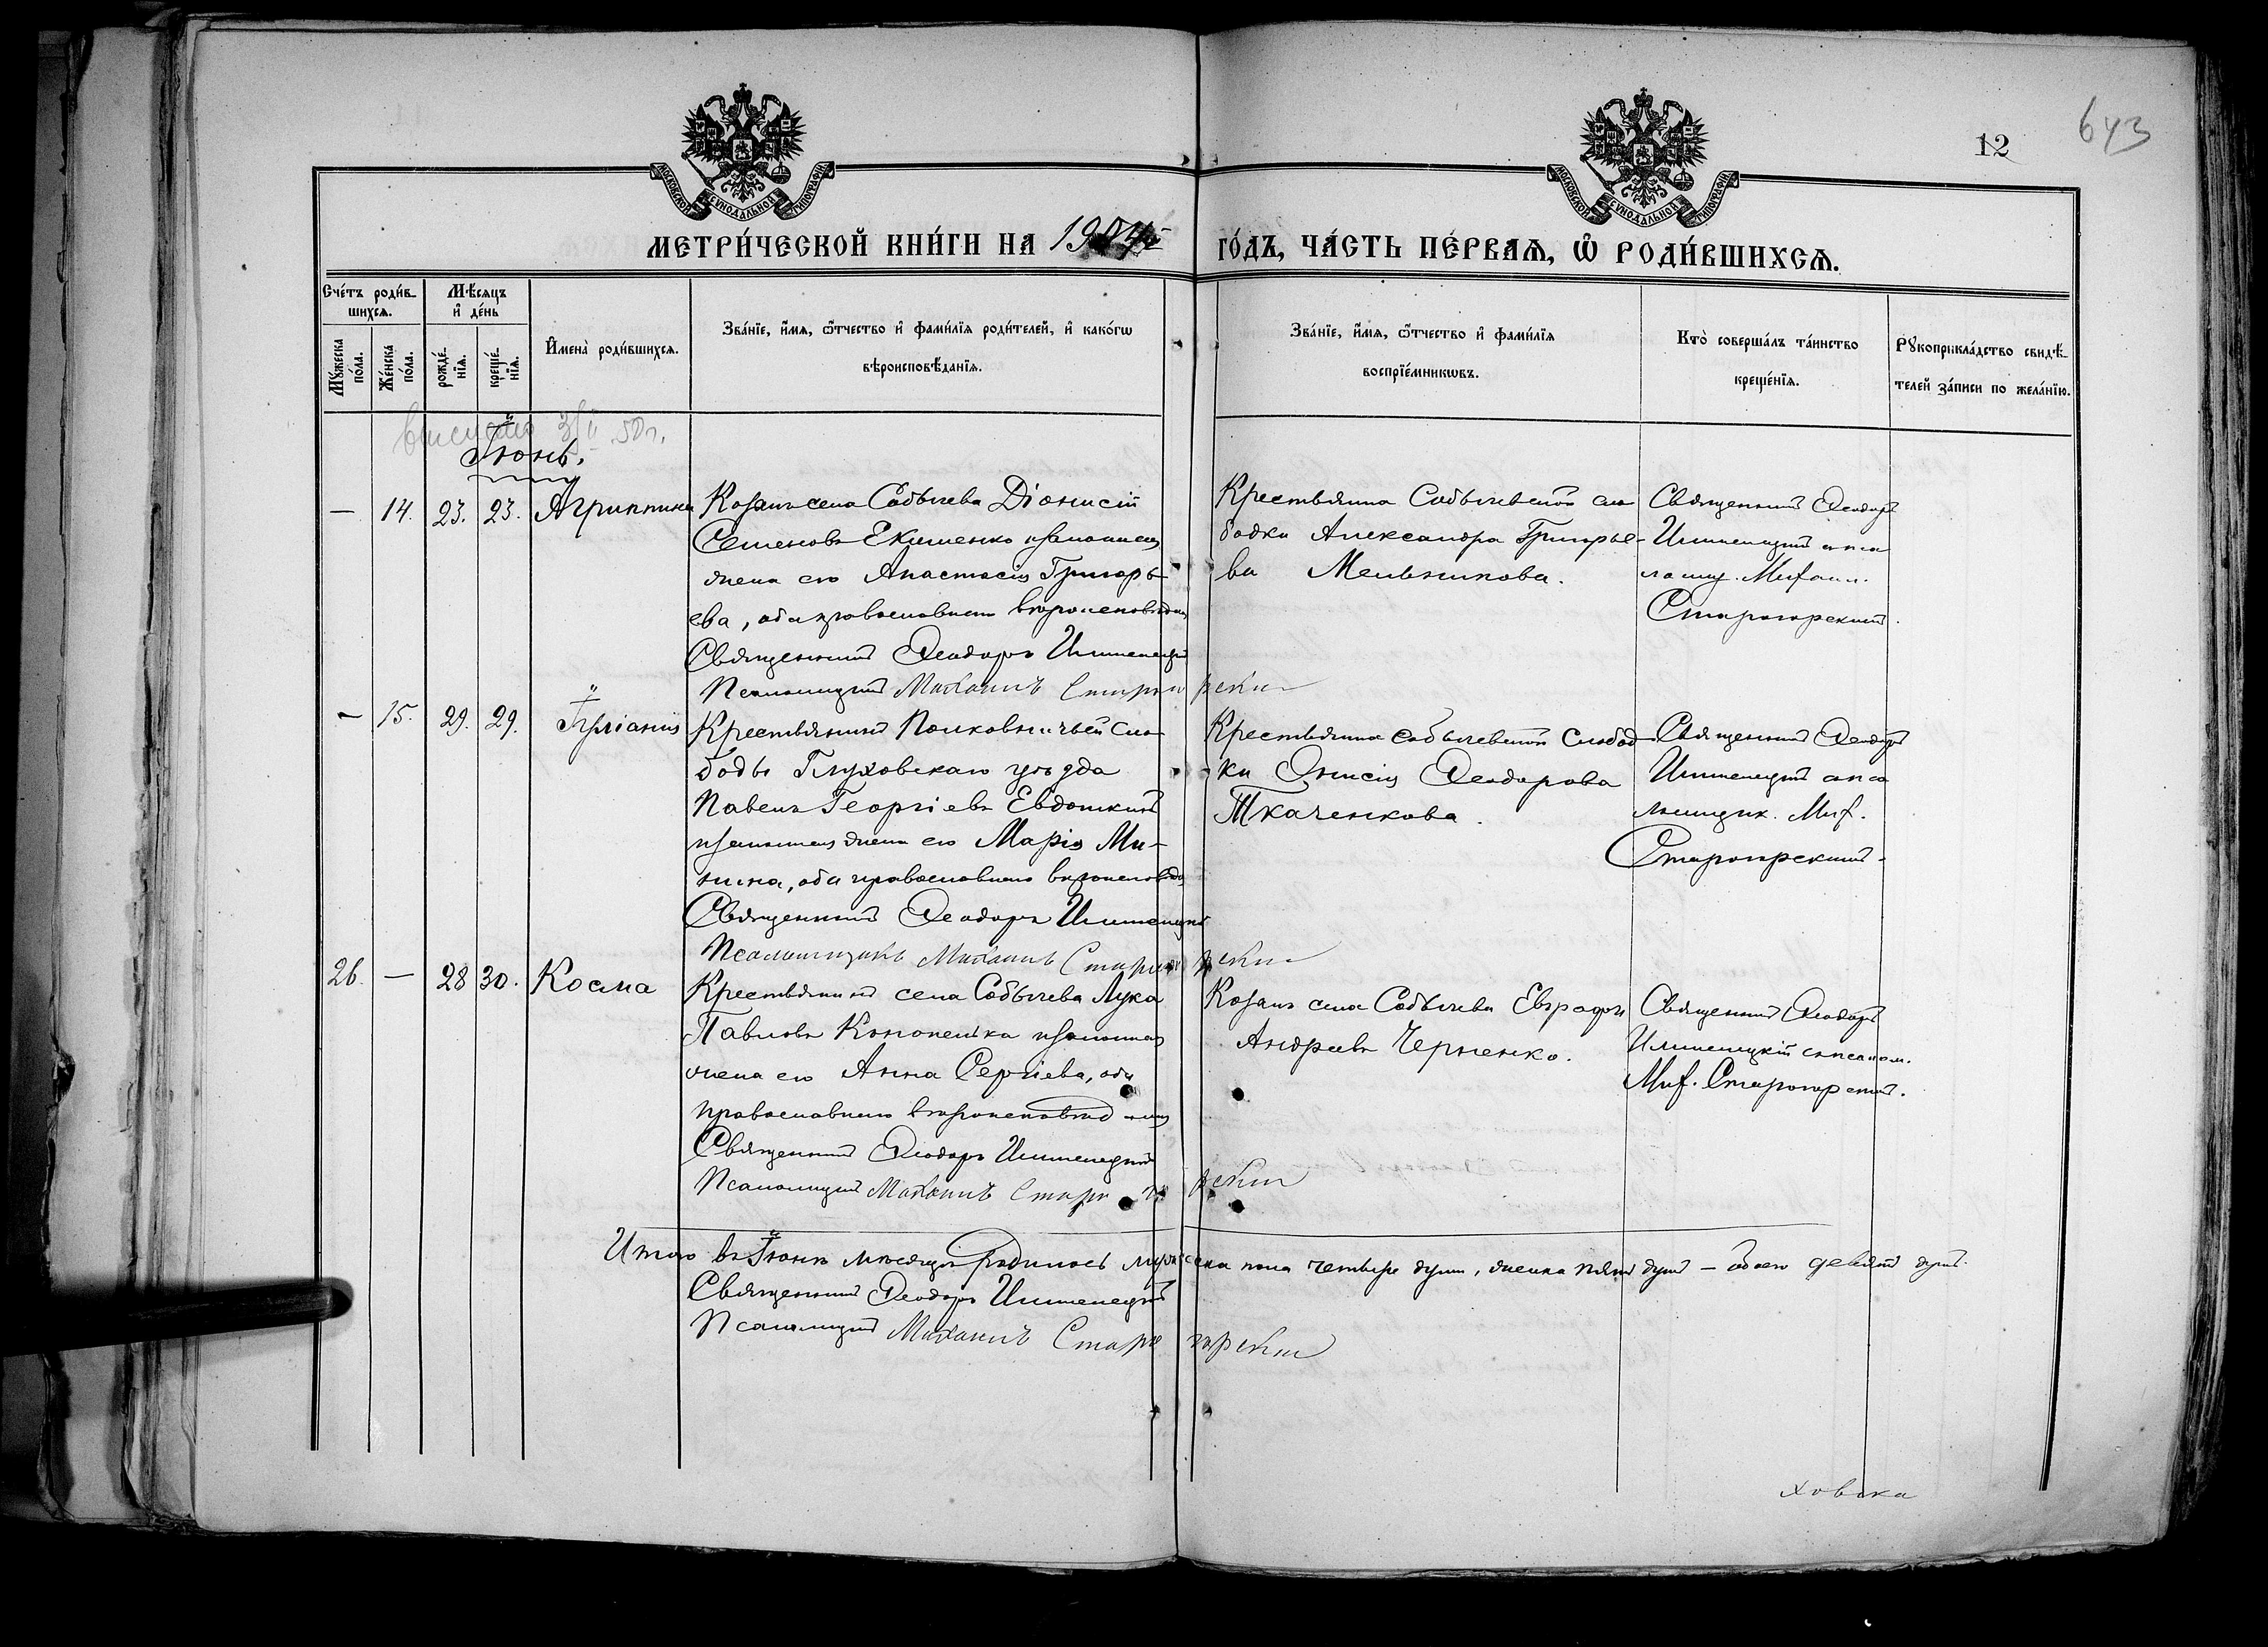 643
12
МОСКОВСКОЙ СѴНОДАЛЬНОЙ ТИПОГРАФІИ
МОСКОВСКОЙ СѴНОДАЛЬНОЙ ТИПОГРАФІИ
МЕТРИ́ЧЕСКОЙ КНИ́ГИ НА 1904й ГО́ДЪ, ЧА́СТЬ ПЕ́РВАѦ, Ѿ РОДИ́ВШИХСѦ.
Сче́тъ роди́в-
шихсѧ.
Мѣ́сѧцъ
и҆ де́нь
Мꙋ́жеска
по́ла.
Же́нска
по́ла.
рожде́-
нїѧ.
креще́-
нїѧ.
И҆мена̀ роди́вшихсѧ.
Зва́нїе, и҆́мѧ, ѻ҆́тчество и҆ фами́лїѧ роди́телей, и҆ како́гѡ
вѣроисповѣ́данїѧ.
Зва́нїе, и҆́мѧ, ѻ҆́тчество и҆ фами́лїѧ
воспрїе́мникѡвъ.
Кто̀ соверша́лъ та́инство
креще́нїѧ.
Рꙋкоприкла́дство свидѣ́-
телей за́писи по жела́нїю.
50 г.
Іюнь.
— 14. 23. 23. Агриппина
Козакъ села Собычева Діонисій
Семеновъ Екименко и законная
жена его Анастасія Григорь-
ева, оба православнаго вѣроисповѣданія
Священникъ Ѳеодоръ
Псаломщикъ Михаилъ Старогорскій
Крестьянка Собычевской сло
бодки Александра Григорье-
ва Мельникова.
Священникъ Ѳеодоръ
съ пса
ломщ. Михаил.
Старогорскимъ.
— 15. 29. 29. Іуліанія
Крестьянинъ Полковничьей Сло
боды Глуховскаго уѣзда
Павелъ Георгіевъ Евдошкинъ
и законная жена его Марія Ми-
нина, оба православнаго вѣроисповѣд
Священникъ Ѳеодоръ
Псаломщикъ Михаилъ Старогорскій
Крестьянка Собычевской Слобод-
ки Онисія Ѳеодорова
Ткаченкова.
Священникъ Ѳеодоръ
съ пса
ломщик. Мих.
Старогорскимъ.
26. — 28 30. Косма
Крестьянинъ села Собычева Лука
Павловъ Кононенко и законная
жена его Анна Сергіева, оба
православнаго вѣроисповѣданія
Священникъ Ѳеодоръ
Псаломщикъ Михаилъ Старогорскій
Козакъ села Собычева Евграфъ
Андреевъ Черненко.
Священникъ Ѳеодоръ
съ псалом.
Мих. Старогорскимъ.
Итого въ Іюнѣ мѣсяцѣ родилось мужеска пола четыре душъ, женска пять душъ — обоего девять душъ.
Священникъ Ѳеодоръ
Псаломщикъ Михаилъ Старогорскій